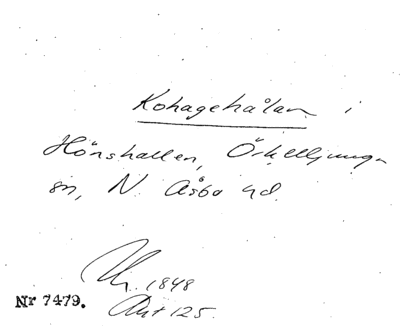 Kohagehålan i
Hönshallen, Örkelljunga
sn, N. Åsbo hd.
Nr 7479.
1848
Akt 125.